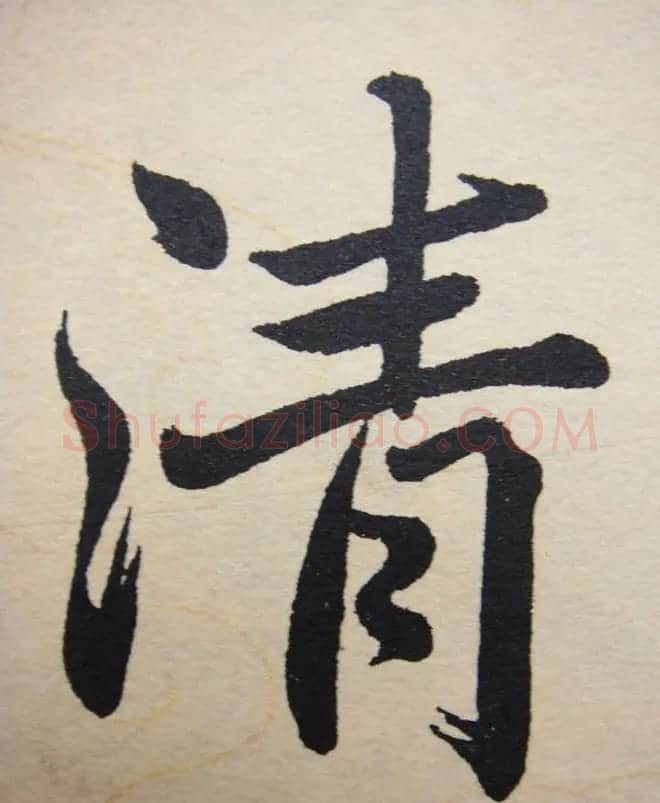 清
Shufaziliao.COM